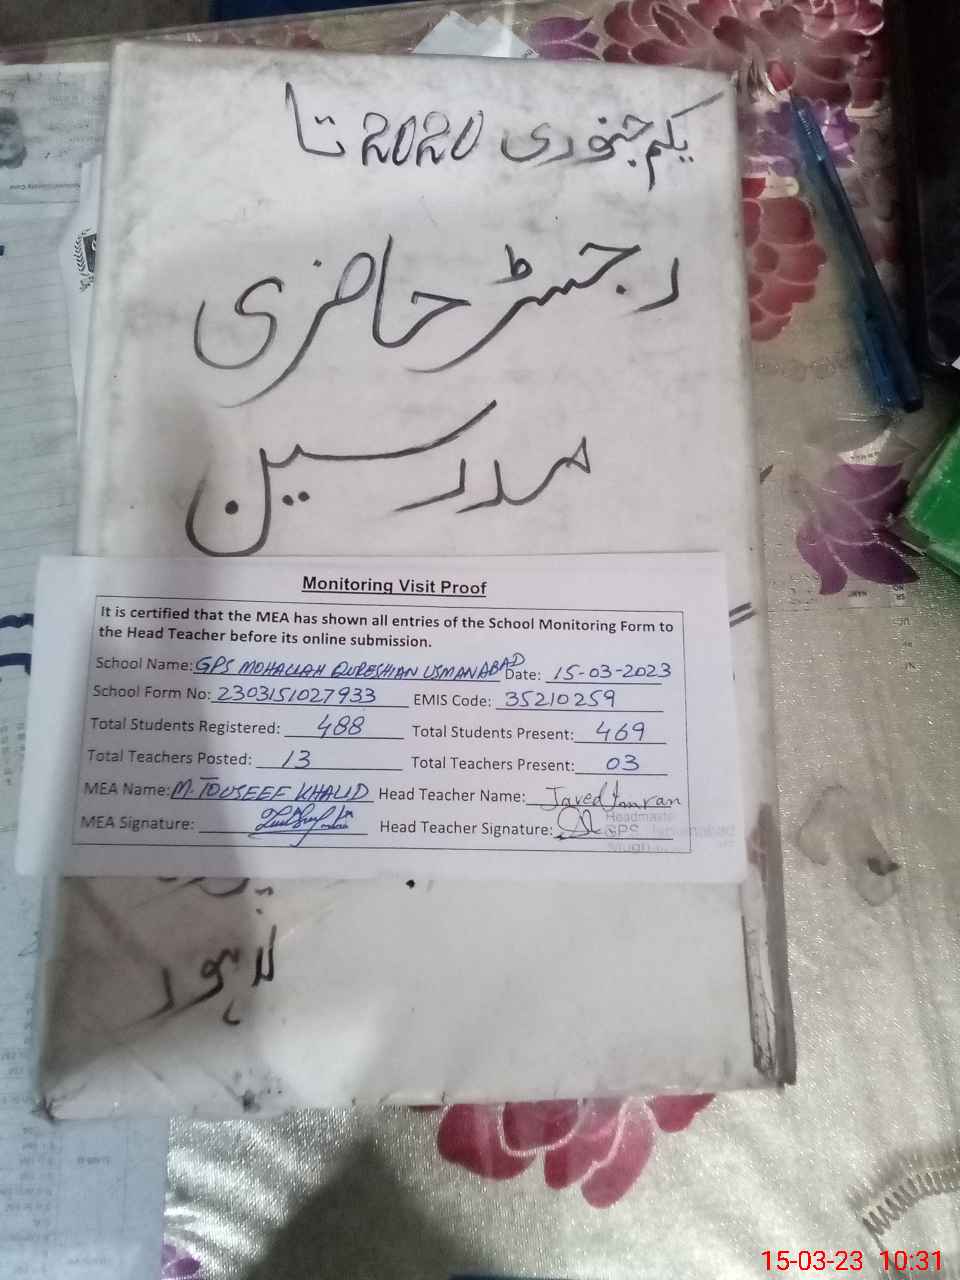 یکم جنوری 2020 تا
رجسٹر حاضری
مدرسین
Monitoring Visit Proof
It is certified that the MEA has shown all entries of the School Monitoring Form to
the Head Teacher before its online submission.
School Name: GPS MOHALLAH QURESHIAN USMANABAD Date: 15-03-2023
School Form No: 2303151027933 EMIS Code: 35210259
Total Students Registered: 488 Total Students Present: 469
Total Teachers Posted: 13 Total Teachers Present: 03
MEA Name: M. TOUSEEF KHALID Head Teacher Name: Javed Imran
MEA Signature: Head Teacher Signature:
Headmaster
GPS
لاہور
15-03-23 10:31